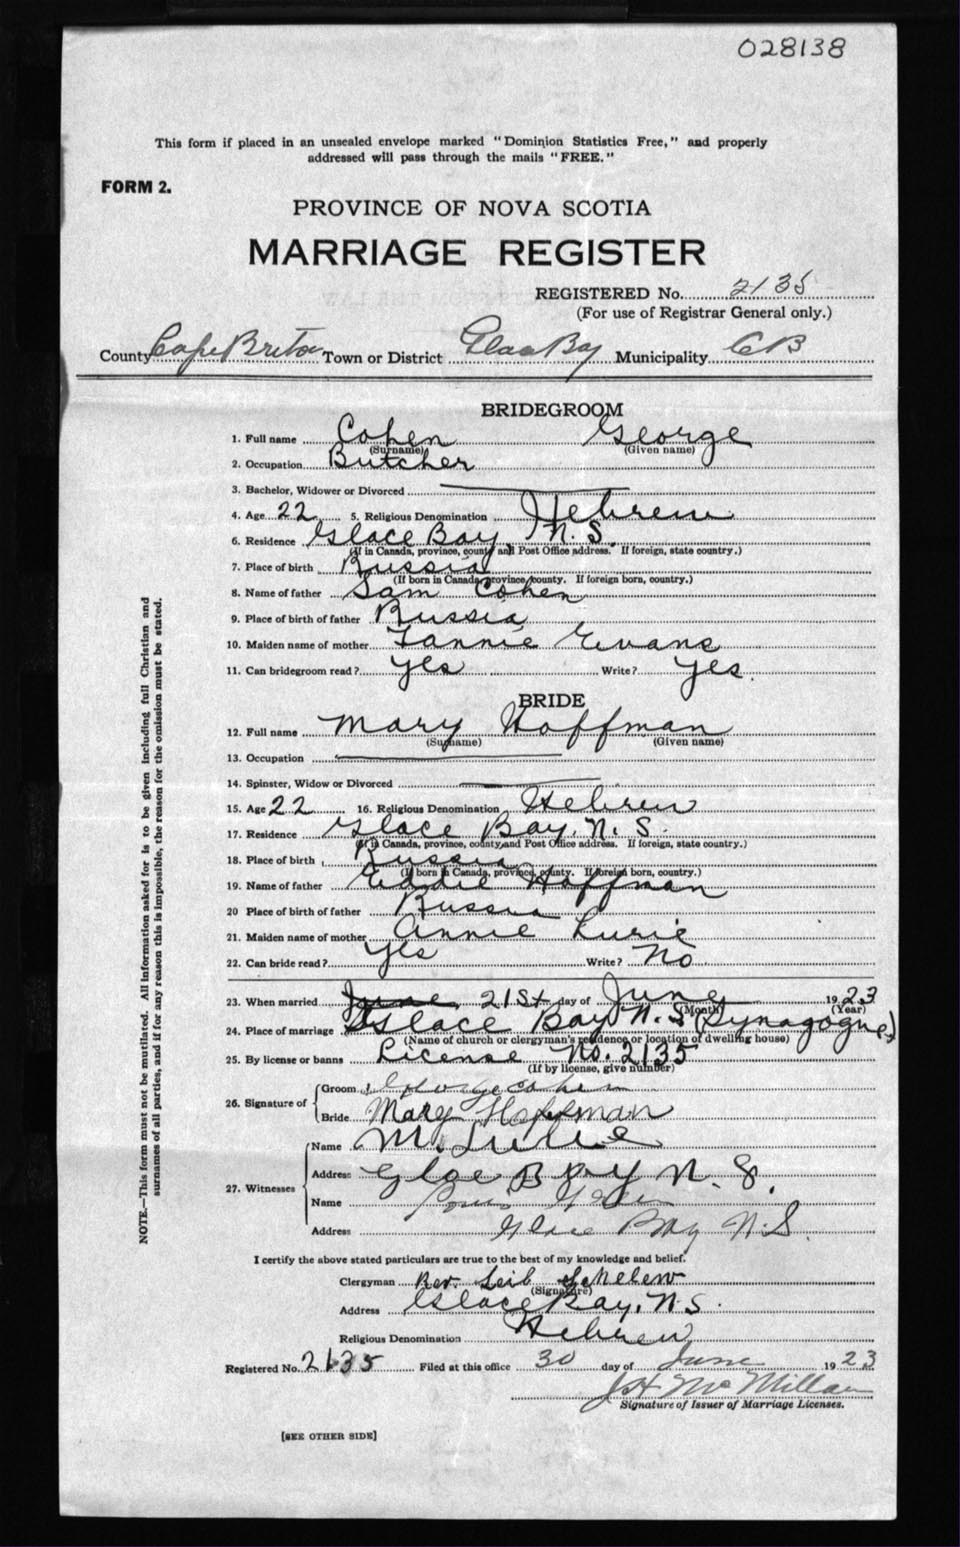 028138
This form if placed in an unsealed envelope marked "Dominion Statistics Free," and properly
addressed will pass through the mails "FREE."
FORM 2.
PROVINCE OF NOVA SCOTIA
MARRIAGE REGISTER
REGISTERED No. 2135
(For use of Registrar General only.)
County Cape Breton Town or District Glace Bay Municipality CB
BRIDEGROOM
1. Full name Cohen George
(Surname) (Given name)
2. Occupation Butcher
3. Bachelor, Widower or Divorced
4. Age 22 5. Religious Denomination Hebrew
6. Residence Glace Bay, N.S.
(If in Canada, province, county and Post Office address. If foreign, state country.)
7. Place of birth Russia
(If born in Canada, province, county. If foreign born, country.)
8. Name of father Sam Cohen
9. Place of birth of father Russia
10. Maiden name of mother Fannie Evans
11. Can bridegroom read? Yes Write? Yes.
BRIDE
12. Full name Mary Hoffman
(Surname) (Given name)
13. Occupation
14. Spinster, Widow or Divorced
15. Age 22 16. Religious Denomination Hebrew
17. Residence Glace Bay, N.S.
(If in Canada, province, county and Post Office address. If foreign, state country.)
18. Place of birth Russia
(If born in Canada, province, county. If foreign born, country.)
19. Name of father Eddie Hoffman
20 Place of birth of father Russia
21. Maiden name of mother Annie Lurie
22. Can bride read? Yes Write? No
23. When married June 21st day of June 1923
(Month) (Year)
24. Place of marriage Glace Bay N.S. (Synagogue)
(Name of church or clergyman's residence or location of dwelling house)
25. By license or banns License No. 2135
(If by license, give number)
26. Signature of Groom George Cohen
Bride Mary Hoffman
27. Witnesses Name M. Lurie
Address Glae Bay N.S.
Name
Address Glace Bay N.S.
I certify the above stated particulars are true to the best of my knowledge and belief.
Clergyman Rev. Leib
(Signature)
Address Glace Bay, N.S.
Religious Denomination Hebrew
Registered No. 2135 Filed at this office 30 day of June 1923
JH McMillan
Signature of Issuer of Marriage Licenses.
[SEE OTHER SIDE]
NOTE.—This form must not be mutilated. All information asked for is to be given including full Christian and
surnames of all parties, and if for any reason this is impossible, the reason for the omission must be stated.